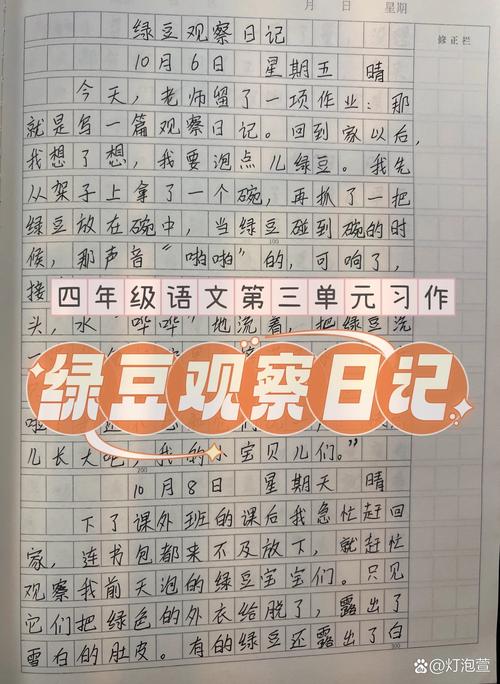 月 日 星期
绿豆观察日记
修正栏
10月6日 星期五 晴
今天，老师留了一项作业：那
就是写一篇观察日记。回到家以后，
我想了想，我要泡点儿绿豆。我先
从架子上拿了一个碗，再抓了一把
绿豆放在碗中，当绿豆碰到碗的时
100
候，那声音“啪啪”的，可响了，
接
四年级语文第三单元习作
头，水“哗哗”地流着，把绿豆洗
绿豆观察日记
儿长大吧，我的小宝贝儿们。”
200
10月8日 星期天 晴
下了课外班的课后我急忙赶回
家，连书包都来不及放下，就赶忙
观察我前天泡的绿豆宝宝们。只见
它们把绿色的外衣给脱了，露出了
雪白的肚皮。有的绿豆还露出了白
300
@灯泡萱